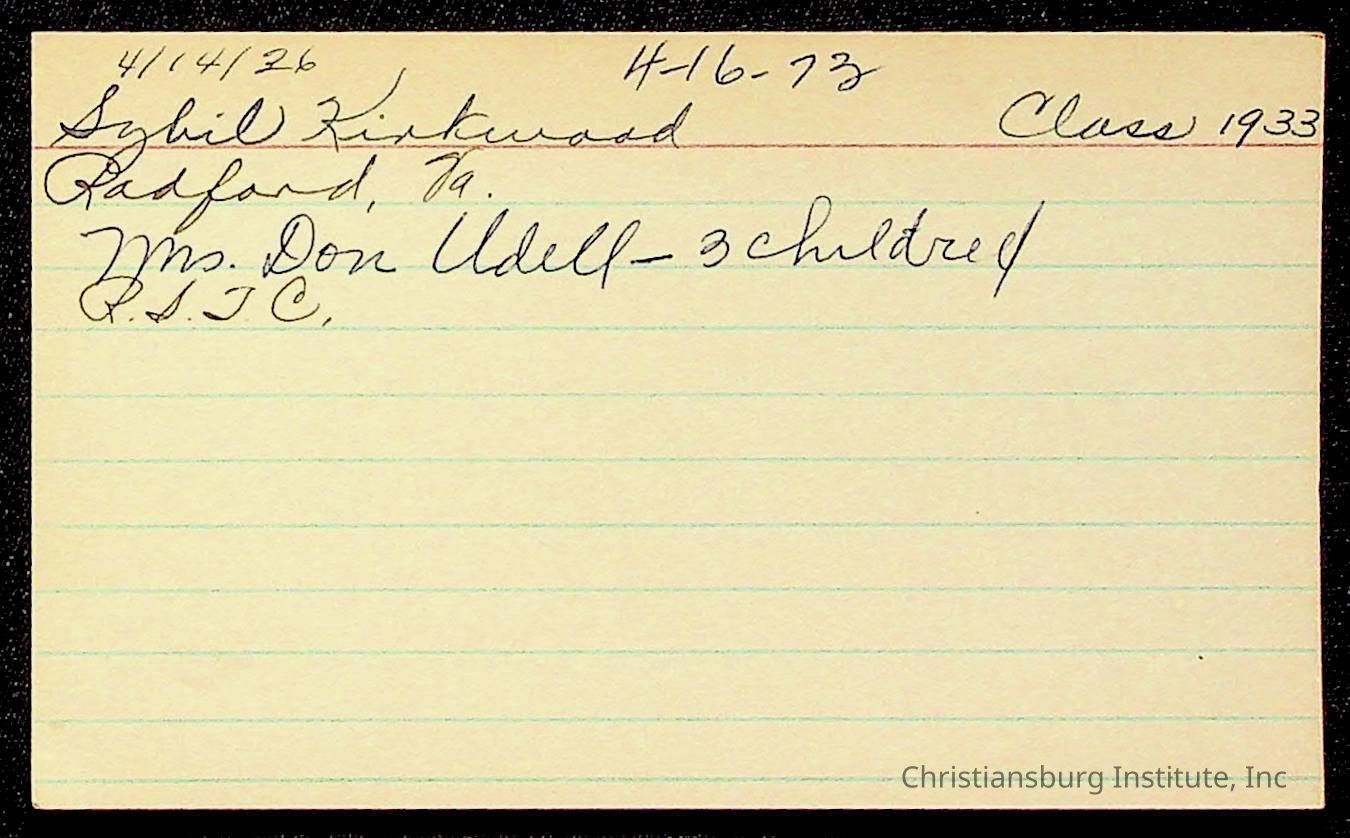 4/14/26 4-16-73
Sybil Kirkwood Class 1933
Radford, Va.
Mrs. Don Udell - 3 children
R.S.T.C.
Christiansburg Institute, Inc